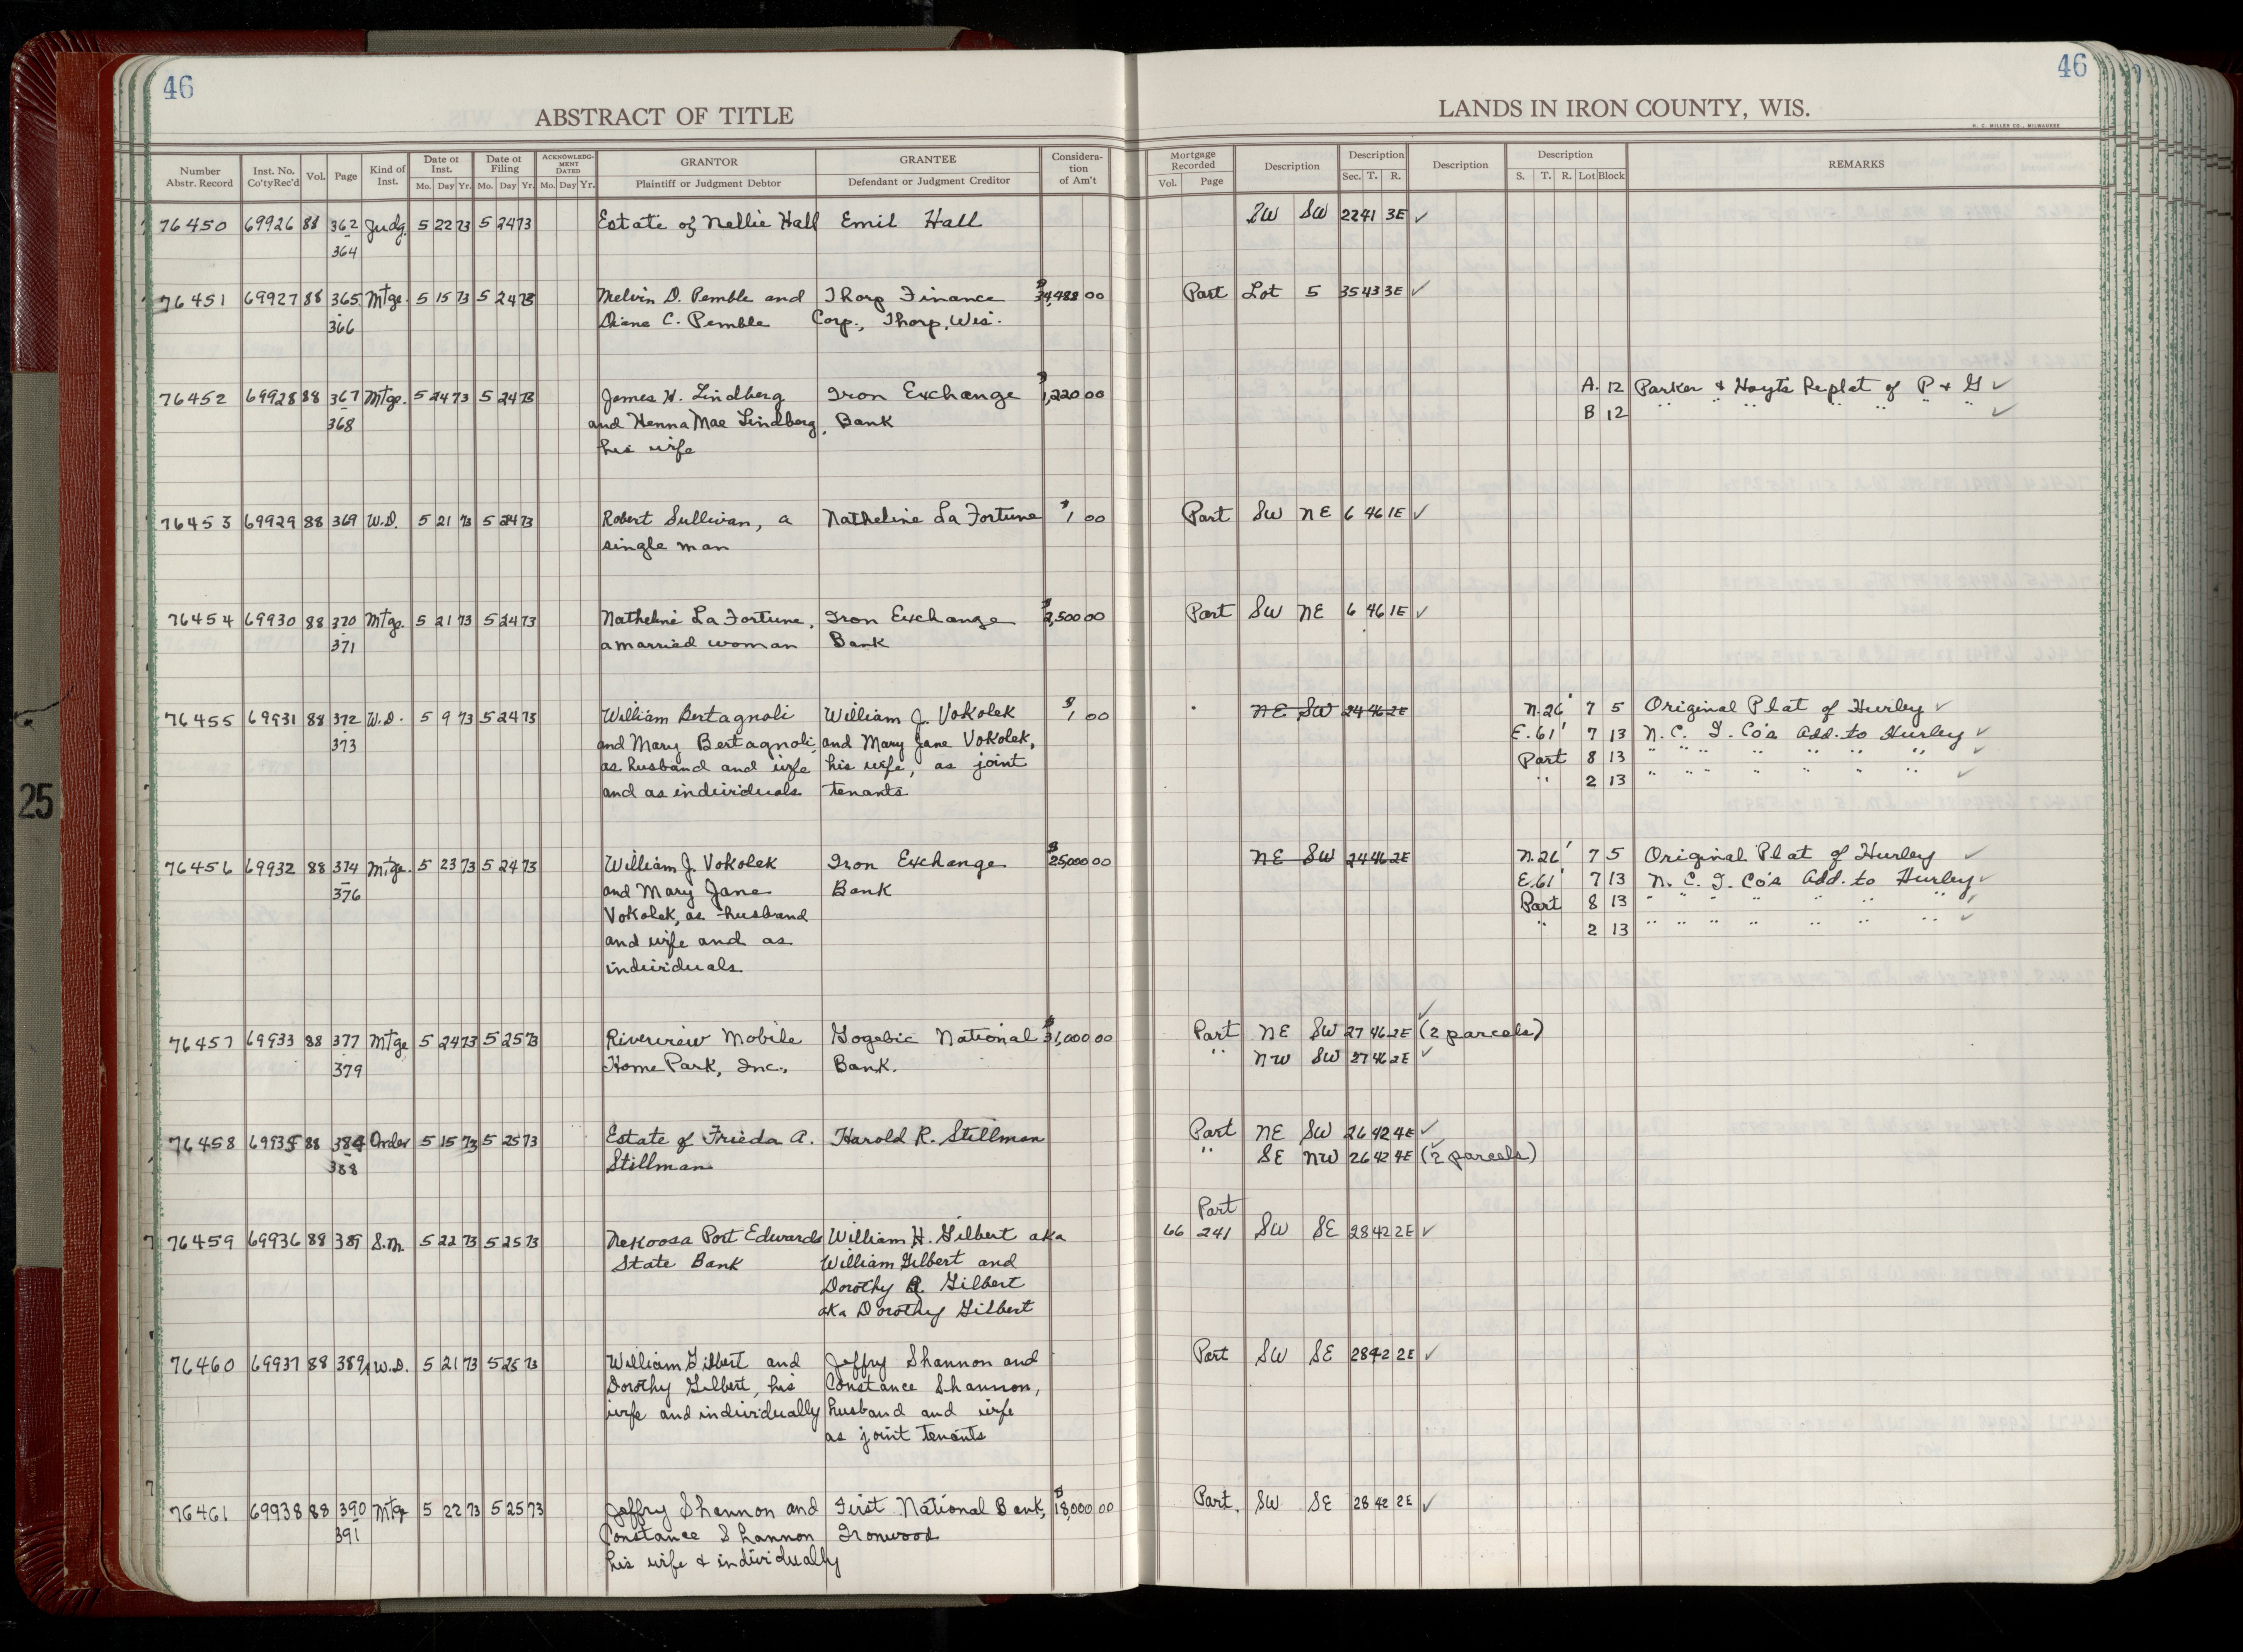 46
46
ABSTRACT OF TITLE
LANDS IN IRON COUNTY, WIS.
H. C. MILLER CO., MILWAUKEE
Number Abstr. Record | Inst. No. Co'ty Rec'd | Vol. | Page | Kind of Inst. | Date of Inst. Mo. Day Yr. | Date of Filing Mo. Day Yr. | ACKNOWLEDGMENT DATED Mo. Day Yr. | GRANTOR Plaintiff or Judgment Debtor | GRANTEE Defendant or Judgment Creditor | Consideration of Am't | Mortgage Recorded Vol. Page | Description | Description Sec. T. R. | Description | Description S. T. R. Lot Block | REMARKS
76450 69926 88 362 Judg. 5 22 73 5 24 73 Estate of Nellie Hall Emil Hall SW SW 22 41 3E ✓
364
76451 69927 88 365 Mtge. 5 15 73 5 24 73 Melvin D. Pemble and Thorp Finance $34,488 00 Part Lot 5 35 43 3E ✓
366 Diane C. Pemble Corp., Thorp, Wis.
76452 69928 88 367 Mtge. 5 24 73 5 24 73 James H. Lindberg Iron Exchange $1,220 00 A. 12 Parker & Hoyt's Replat of P & G ✓
368 and Henna Mae Lindberg, Bank B 12 " " " " " " " ✓
his wife
76453 69929 88 369 W.D. 5 21 73 5 24 73 Robert Sullivan, a Natheline La Fortune $1 00 Part SW NE 6 46 1E ✓
single man
76454 69930 88 370 Mtge. 5 21 73 5 24 73 Natheline La Fortune, Iron Exchange $2,500 00 Part SW NE 6 46 1E ✓
371 a married woman Bank
76455 69931 88 372 W.D. 5 9 73 5 24 73 William Bertagnoli William J. Vokolek $1 00 NE SW 24 46 2E N.26' 7 5 Original Plat of Hurley ✓
373 and Mary Bertagnoli, and Mary Jane Vokolek, E.61' 7 13 N. C. I. Co's Add. to Hurley ✓
as husband and wife his wife, as joint Part 8 13 " " " " " " " ✓
and as individuals tenants " 2 13 " " " " " " " ✓
76456 69932 88 374 Mtge. 5 23 73 5 24 73 William J. Vokolek Iron Exchange $25,000 00 NE SW 24 46 2E N.26' 7 5 Original Plat of Hurley ✓
376 and Mary Jane Bank E.61' 7 13 N. C. I. Co's Add. to Hurley ✓
Vokolek, as husband Part 8 13 " " " " " " " ✓
and wife and as " 2 13 " " " " " " " ✓
individuals
76457 69933 88 377 Mtge 5 24 73 5 25 73 Riverview Mobile Gogebic National $31,000 00 Part NE SW 27 46 2E (2 parcels) ✓
379 Home Park, Inc., Bank. " NW SW 27 46 2E ✓
76458 69935 88 384 Order 5 15 73 5 25 73 Estate of Frieda A. Harold R. Stillman Part NE SW 26 42 4E ✓
388 Stillman " SE NW 26 42 4E (2 parcels) ✓
Part
76459 69936 88 389 S.M. 5 22 73 5 25 73 Nekoosa Port Edwards William H. Gilbert aka 66 241 SW SE 28 42 2E ✓
State Bank William Gilbert and
Dorothy R. Gilbert
aka Dorothy Gilbert
76460 69937 88 389A W.D. 5 21 73 5 25 73 William Gilbert and Jeffry Shannon and Part SW SE 28 42 2E ✓
Dorothy Gilbert, his Constance Shannon,
wife and individually husband and wife
as joint tenants
76461 69938 88 390 Mtge 5 22 73 5 25 73 Jeffry Shannon and First National Bank, $18,000 00 Part. SW SE 28 42 2E ✓
391 Constance Shannon Ironwood
his wife & individually
25